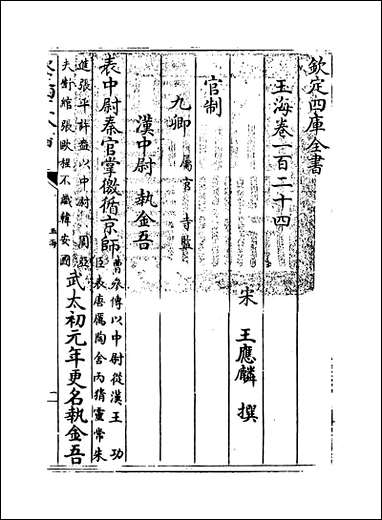 欽定四庫全書
玉海卷一百二十四
宋 王應麟 撰
官制
九卿 屬官 寺監
漢中尉 執金吾
表中尉秦官掌徼循京師 曹參傳以中尉從漢王 功
臣表唐厲陶舍丙猜靈常朱
進張平許盎以中尉 周
夫郅綰張歐程不識韓安國
武太初元年更名執金吾
玉海